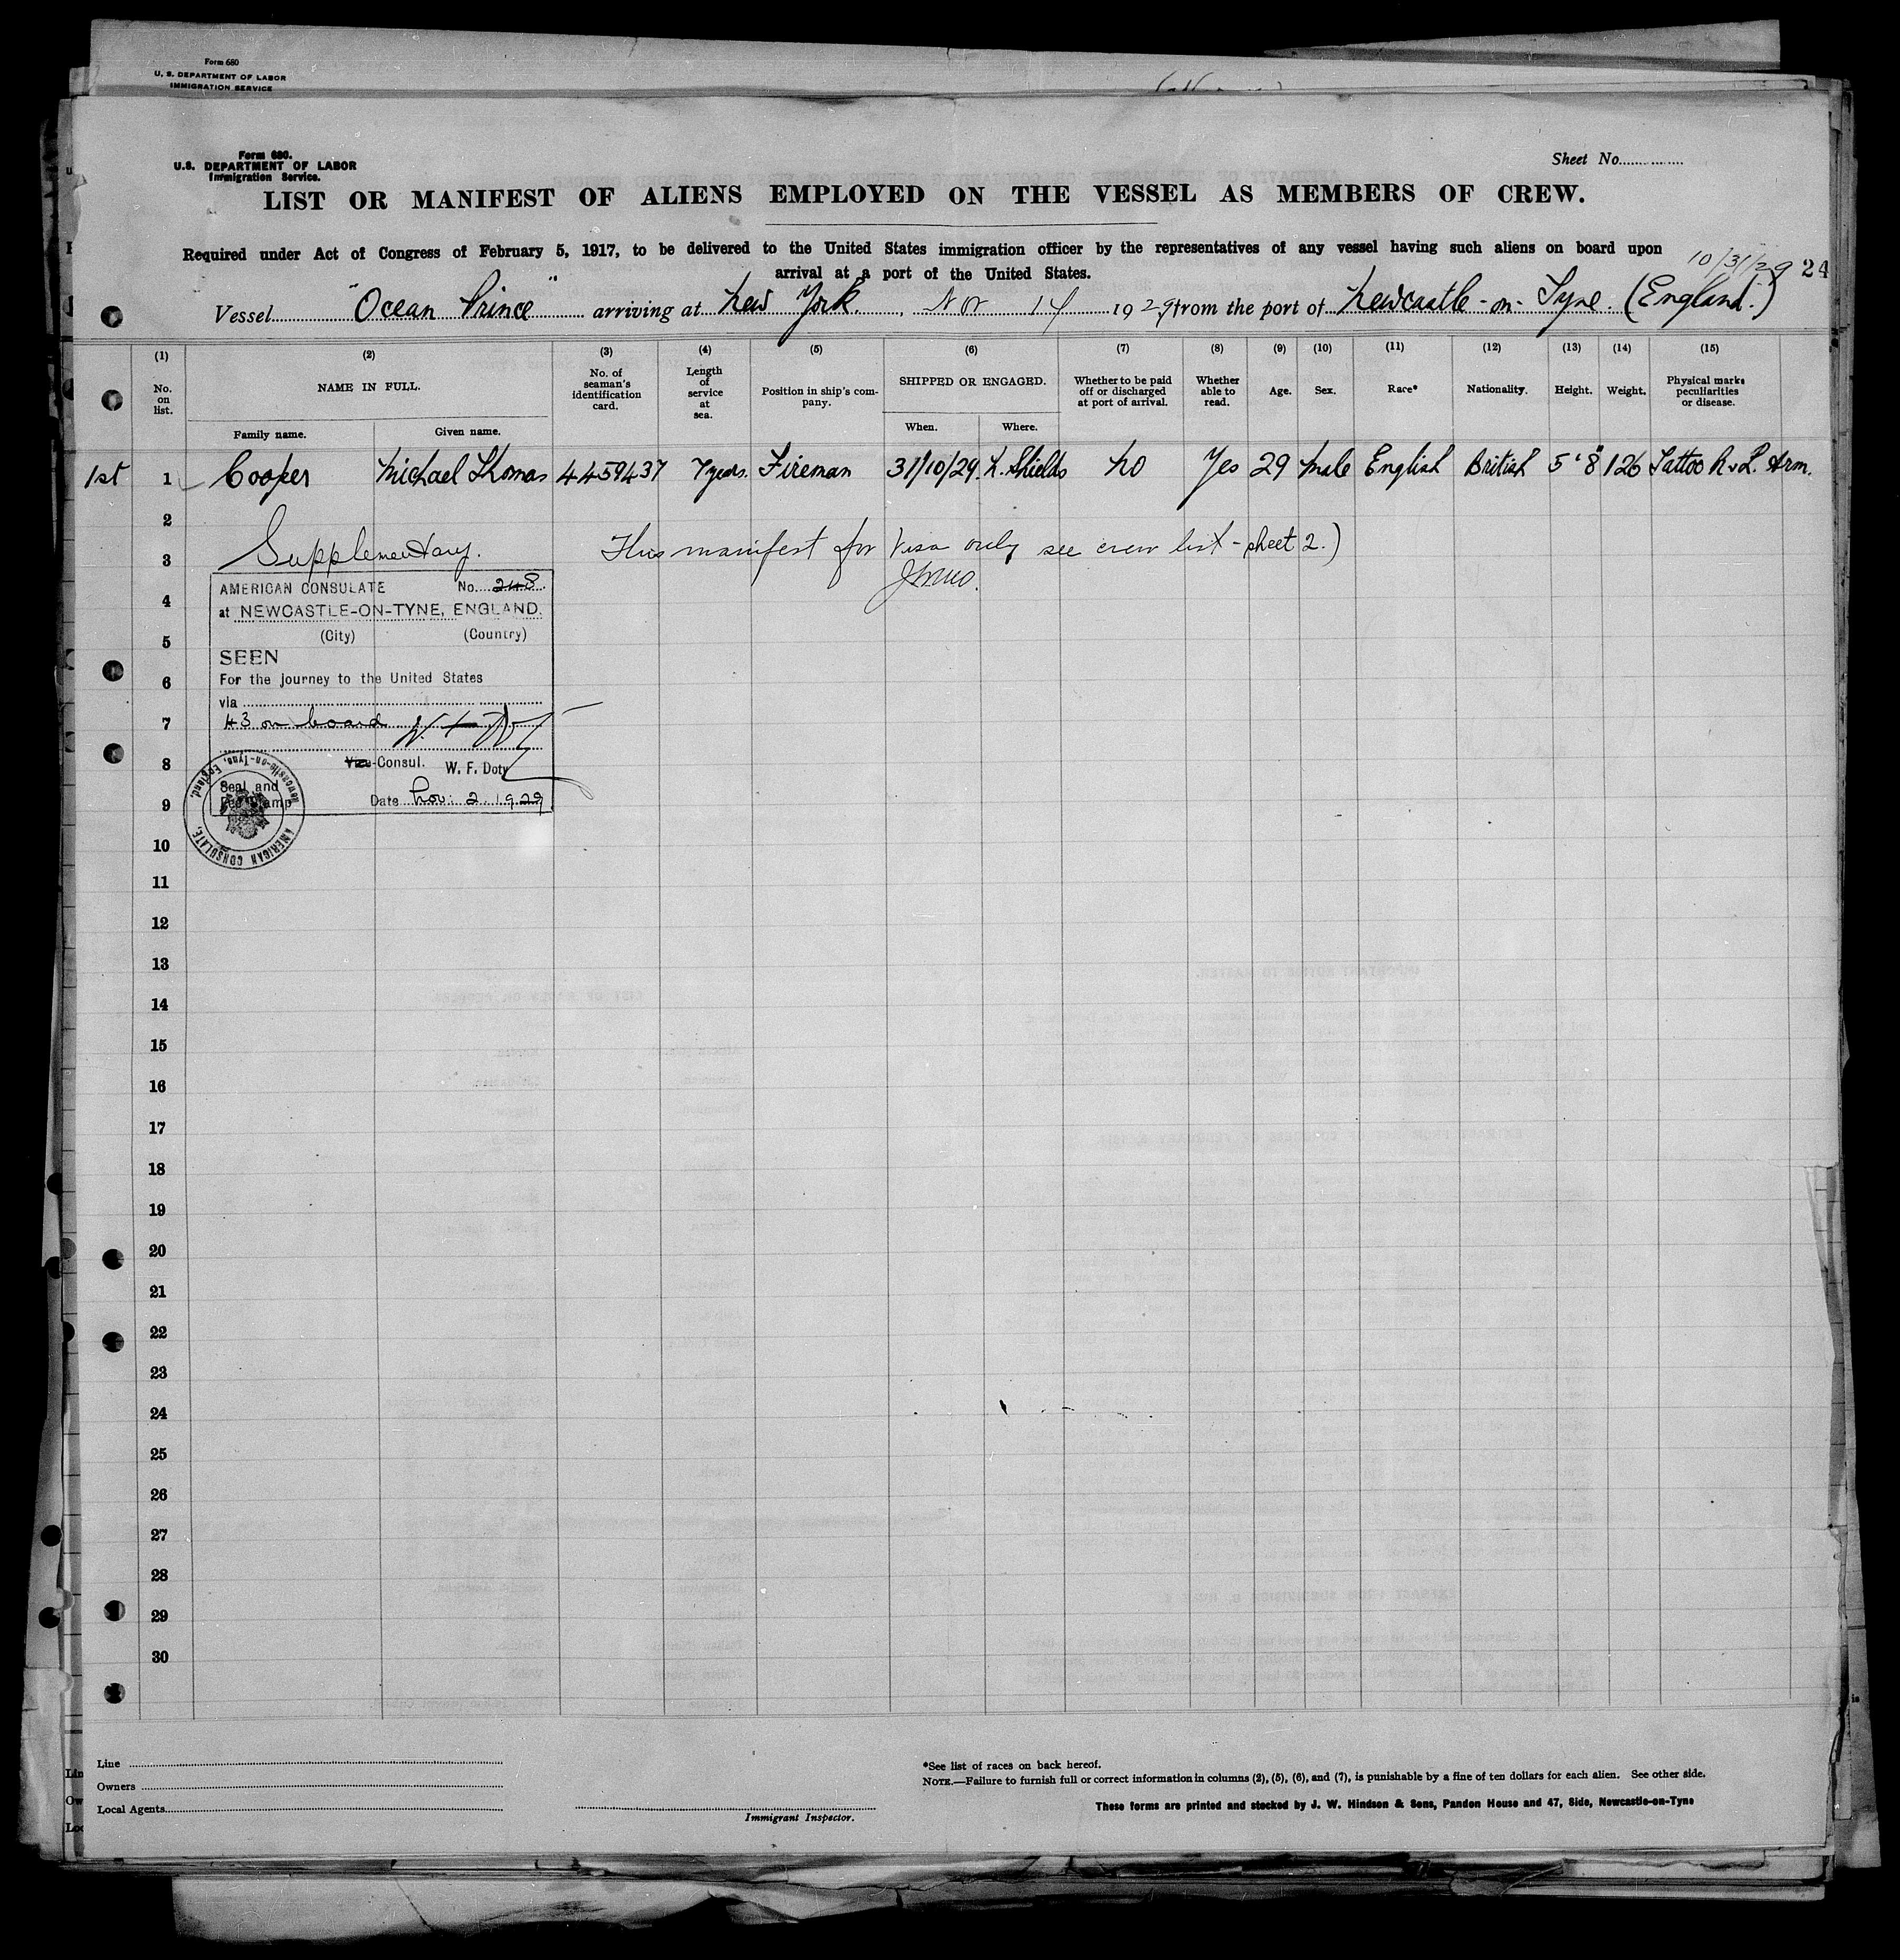 Form 680
U. S. DEPARTMENT OF LABOR
IMMIGRATION SERVICE
Form 680.
U.S. DEPARTMENT OF LABOR
Immigration Service.
Sheet No.
LIST OR MANIFEST OF ALIENS EMPLOYED ON THE VESSEL AS MEMBERS OF CREW.
Required under Act of Congress of February 5, 1917, to be delivered to the United States immigration officer by the representatives of any vessel having such aliens on board upon
arrival at a port of the United States.
10/31/29 24
Vessel "Ocean Prince" arriving at New York. Nov 14 1929 from the port of Newcastle-on-Tyne. (England.)
(1) (2) (3) (4) (5) (6) (7) (8) (9) (10) (11) (12) (13) (14) (15)
No. on list. NAME IN FULL. No. of seaman's identification card. Length of service at sea. Position in ship's company. SHIPPED OR ENGAGED. Whether to be paid off or discharged at port of arrival. Whether able to read. Age. Sex. Race* Nationality. Height. Weight. Physical marks peculiarities or disease.
Family name. Given name. When. Where.
1st 1 Cooper Michael Thomas 4459437 7 years. Fireman 31/10/29. N. Shields No Yes 29 Male English British 5'8" 126 Tattoo R & L. Arm.
2
3 Supplementary. This manifest for visa only see crew list - sheet 2.)
AMERICAN CONSULATE No. 248
4
at NEWCASTLE-ON-TYNE, ENGLAND.
(City) (Country)
5
SEEN
6 For the journey to the United States
via
7 43 on board
8 Vice-Consul. W. F. Doty
Seal and
Fee Stamp
9 Date Nov: 2. 1929
AMERICAN CONSULATE, Newcastle-on-Tyne, England.
10
11
12
13
14
15
16
17
18
19
20
21
22
23
24
25
26
27
28
29
30
Line
Owners
Local Agents
Immigrant Inspector.
*See list of races on back hereof.
NOTE.—Failure to furnish full or correct information in columns (2), (5), (6), and (7), is punishable by a fine of ten dollars for each alien. See other side.
These forms are printed and stocked by J. W. Hindson & Sons, Pandon House and 47, Side, Newcastle-on-Tyne